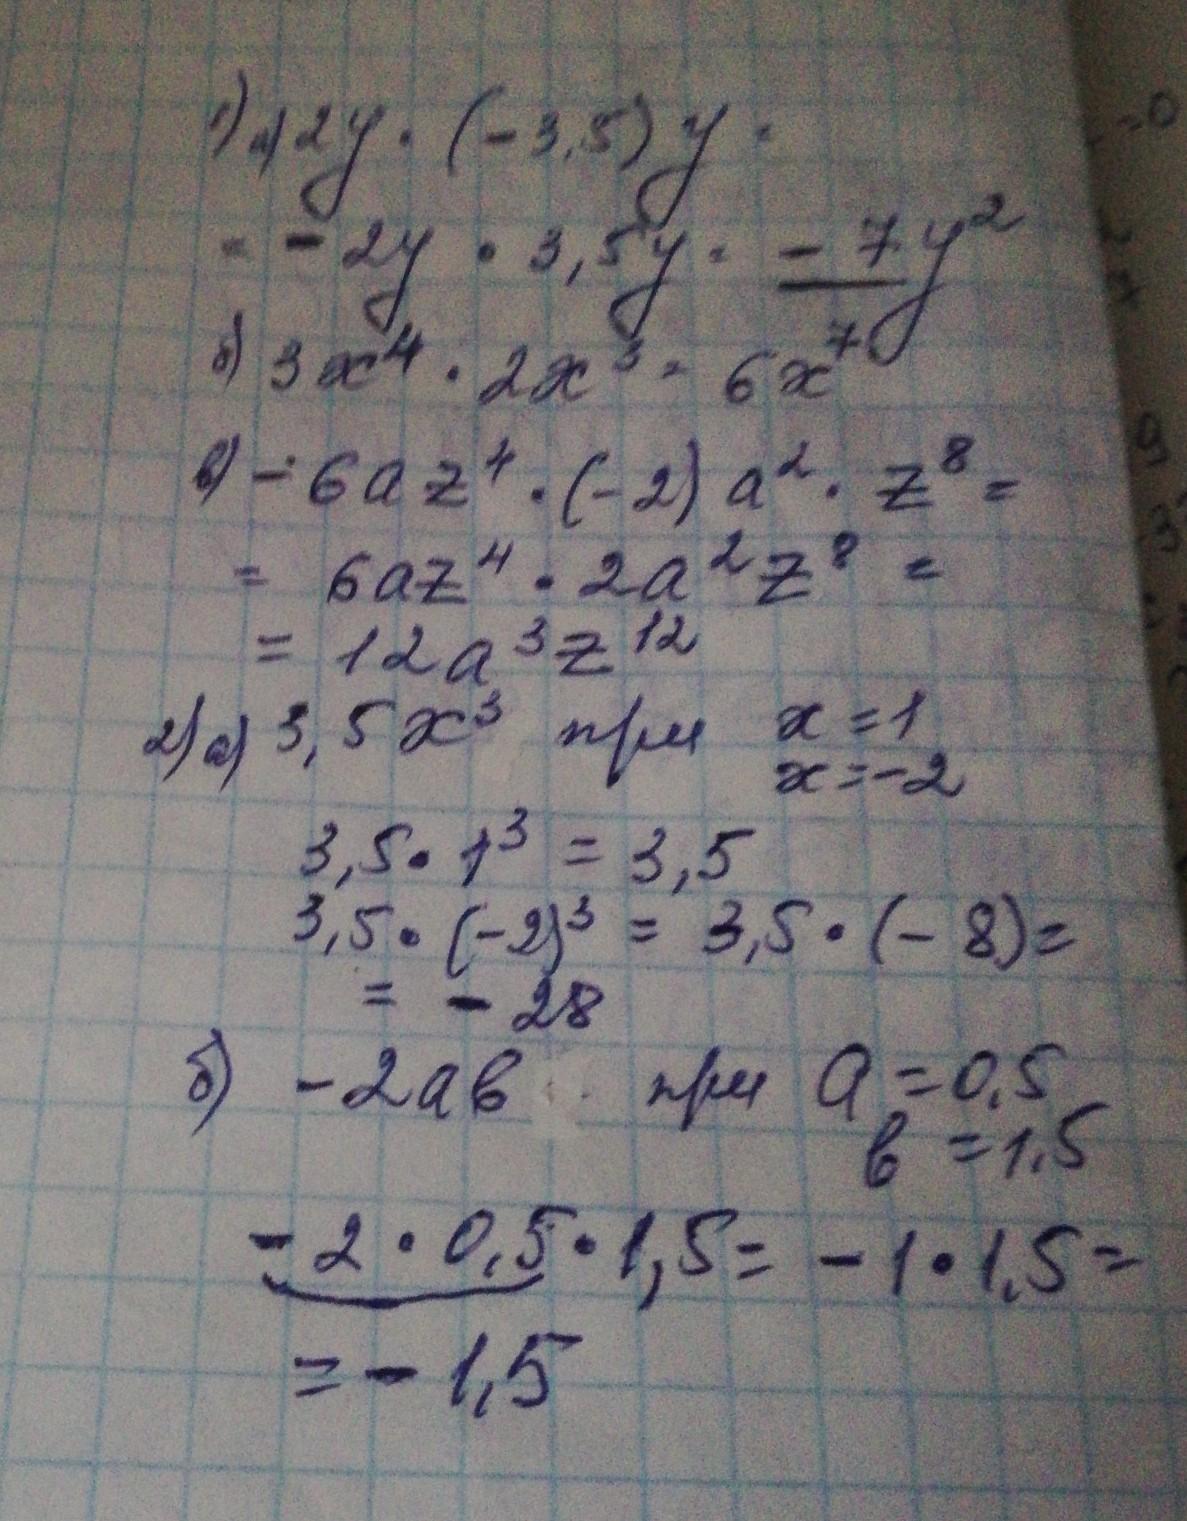 1) а) 2y · (-3,5) y =
= - 2y · 3,5y = - 7y²
б) 3x⁴ · 2x³ = 6x⁷
в) - 6az⁴ · (-2) a² · z⁸ =
= 6az⁴ · 2a²z⁸ =
= 12a³z¹²
2) а) 3,5x³ при x = 1
x = -2
3,5 · 1³ = 3,5
3,5 · (-2)³ = 3,5 · (- 8) =
= - 28
б) - 2ab при a = 0,5
b = 1,5
- 2 · 0,5 · 1,5 = - 1 · 1,5 =
= - 1,5